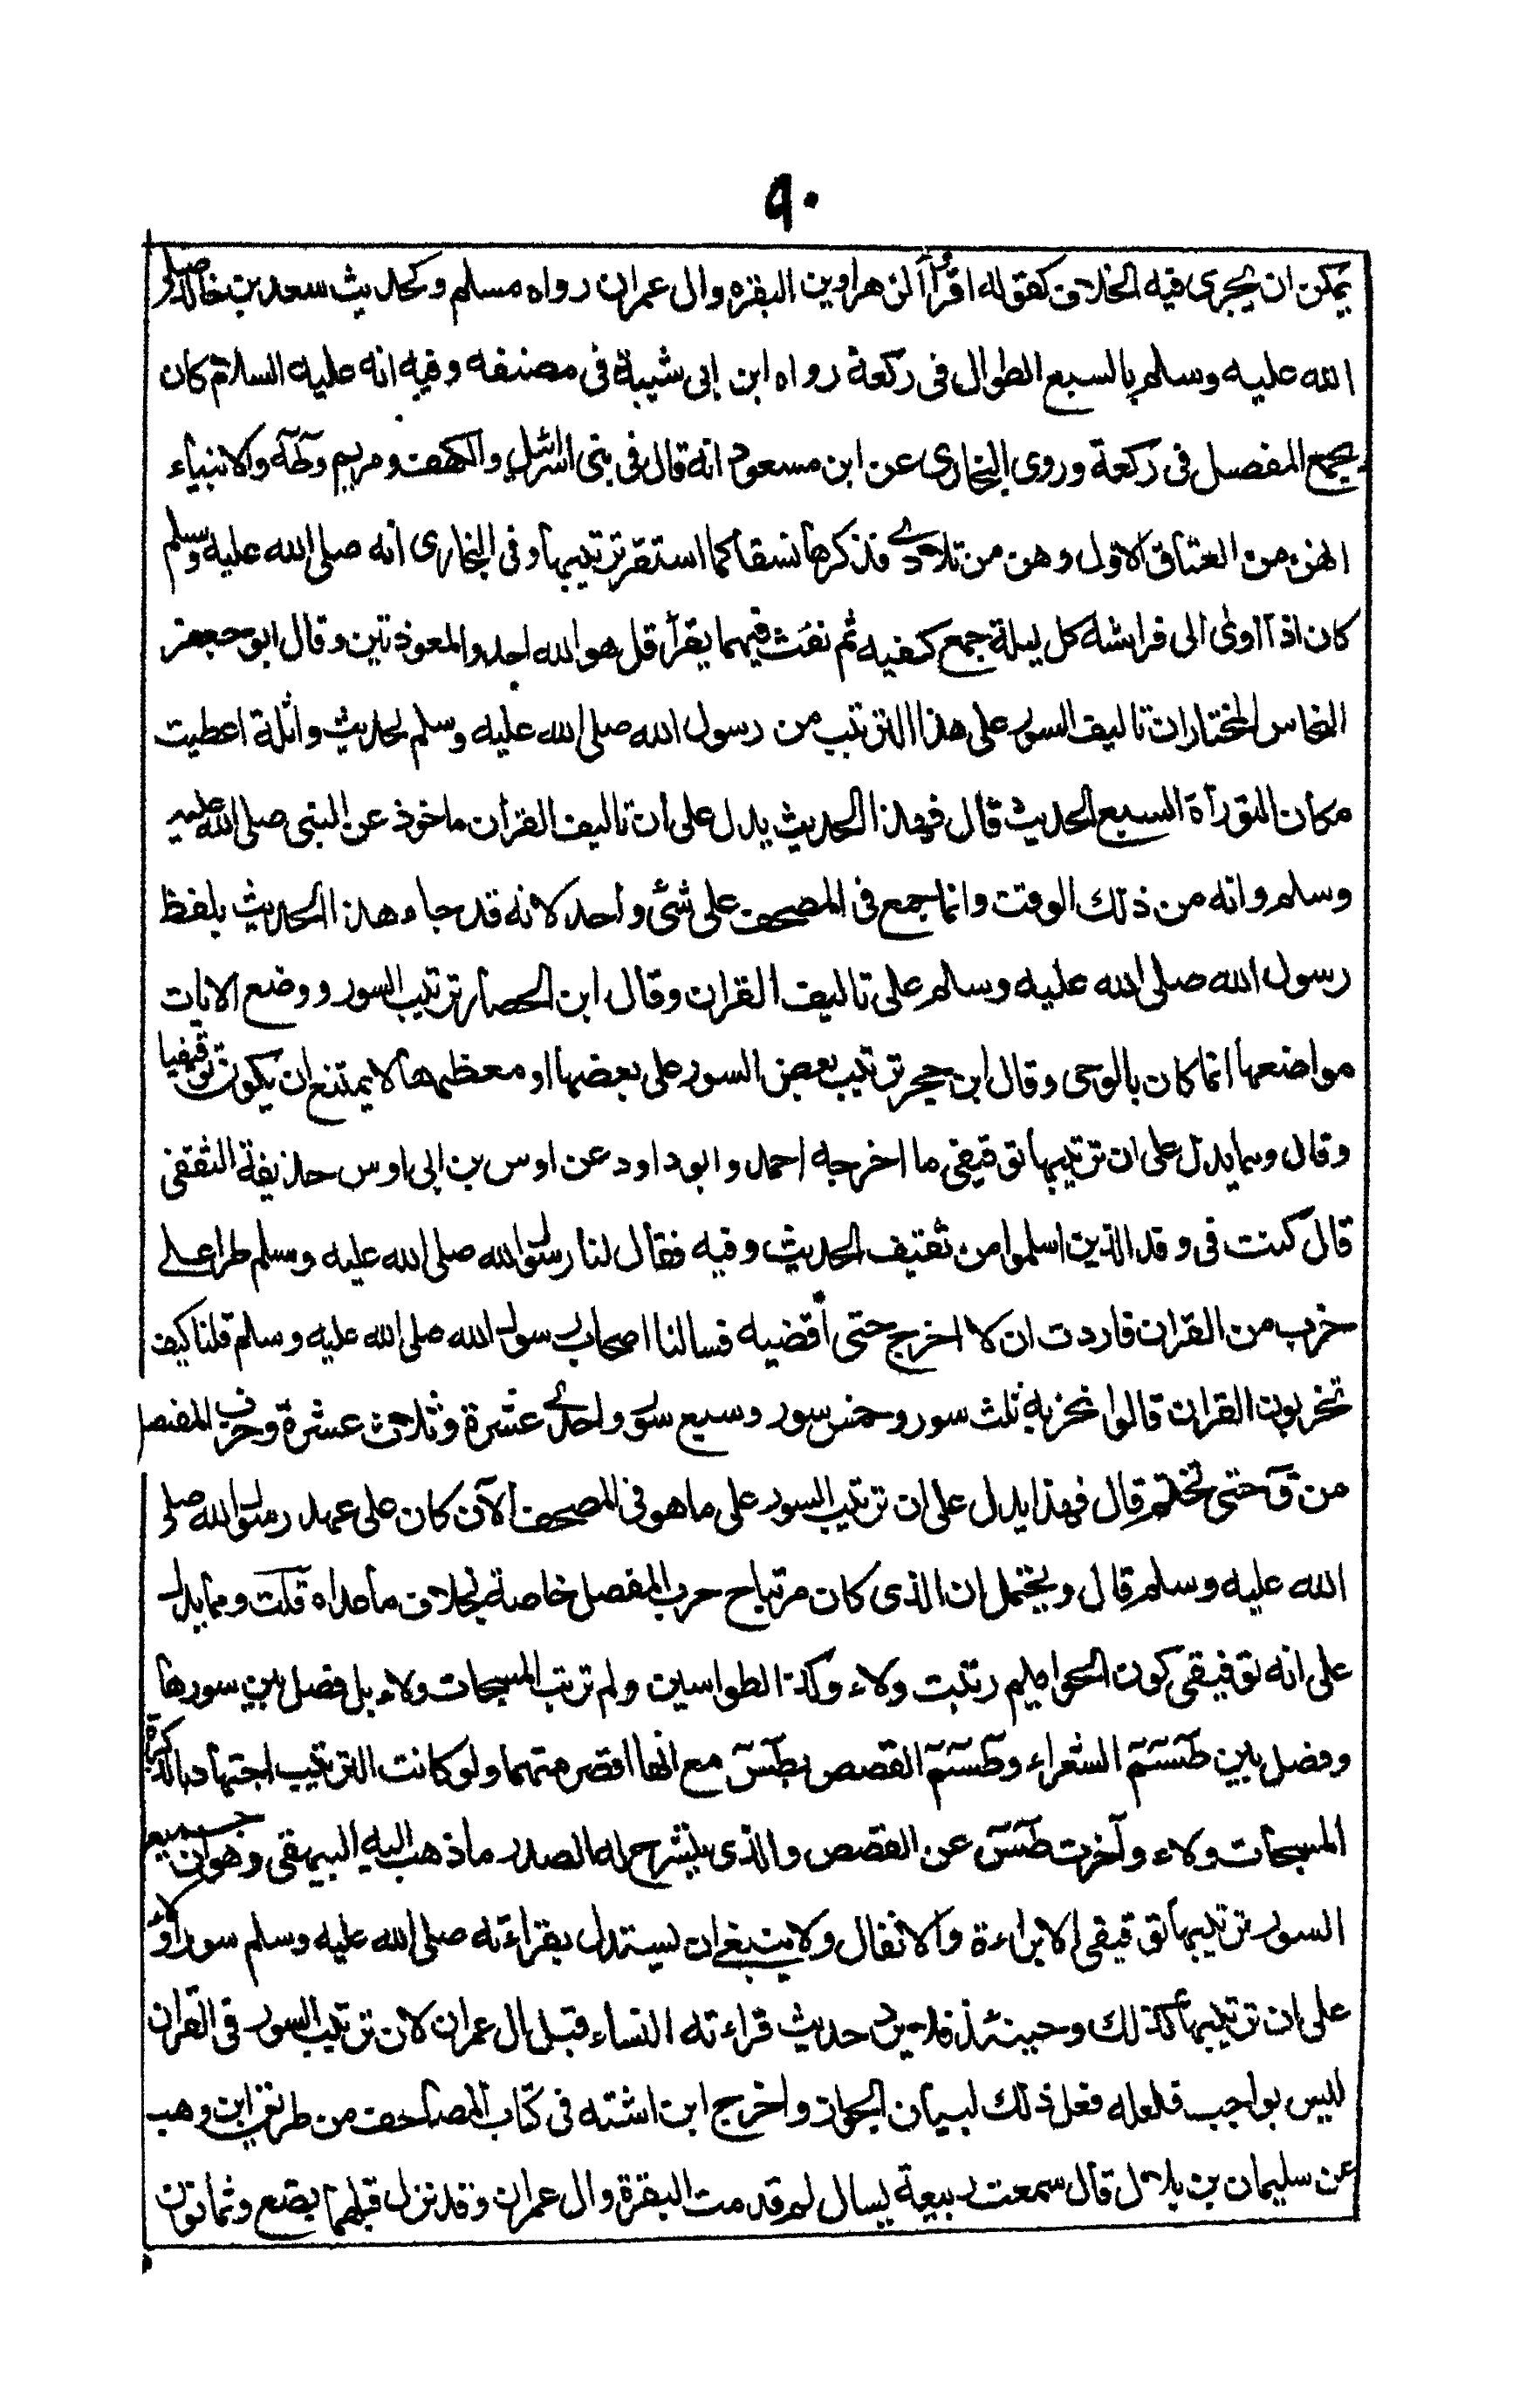 ٩٠
يمكن ان يجرى فيه الخلاف كقوله اقرأ الزهراوين البقره وال عمران رواه مسلم وكحديث سعد بن خالد صلى
الله عليه وسلم بالسبع الطوال فى ركعة رواه ابن ابى شيبة فى مصنفه وفيه انه عليه السلام كان
يجمع المفصل فى ركعة وروى البخارى عن ابن مسعود انه قال فى بنى اسرائيل والكهف ومريم وطه والانبياء
انهن من العتاق الاول وهن من تلادى فذكرها نسقا كما استقر ترتيبها وفى البخارى انه صلى الله عليه وسلم
كان اذا اوى الى فراشه كل ليلة جمع كفيه ثم نفث فيهما يقرأ قل هو الله احد والمعوذتين وقال ابو جعفر
النحاس المختار ان تاليف السور على هذا الترتيب من رسول الله صلى الله عليه وسلم لحديث واثلة اعطيت
مكان التورآة السبع الحديث قال فهذا الحديث يدل على ان تاليف القرآن ماخوذ عن النبى صلى الله عليه
وسلم وانه من ذلك الوقت وانما جمع فى المصحف على شئ واحد لانه قد جاء هذا الحديث بلفظ
رسول الله صلى الله عليه وسلم على تاليف القران وقال ابن الحصار ترتيب السور ووضع الايات
مواضعها انما كان بالوحى وقال ابن حجر ترتيب بعض السور على بعضها او معظمها لا يمتنع ان يكون توقيفيا
وقال ومما يدل على ان ترتيبها توقيفى ما اخرجه احمد وابو داود عن اوس بن ابى اوس حذيفة الثقفى
قال كنت فى وفد الذين اسلموا من ثقيف الحديث وفيه فقال لنا رسول الله صلى الله عليه وسلم طرا على
حزب من القران فاردت ان لا اخرج حتى اقضيه فسالنا اصحاب رسول الله صلى الله عليه وسلم قلنا كيف
تحزبون القران قالوا نحزبه ثلث سور وخمس سور وسبع سور واحدى عشرة وثلاث عشرة وحزب المفصل
من ق حتى نختم قال فهذا يدل على ان ترتيب السور على ما هو فى المصحف الآن كان على عهد رسول الله صلى
الله عليه وسلم قال ويحتمل ان الذى كان مرتبا ح حزب المفصل خاصة بخلاف ما عداه قلت ومما يدل
على انه توقيفى كون الحواميم رتبت ولاء وكذا الطواسين ولم ترتب المسبحات ولاء بل فصل بين سورها
وفصل بين طسٓمٓ الشعراء وطسٓمٓ القصص بطسٓ مع انها اقصر منهما ولو كان الترتيب اجتهاديا لذكرت
المسبحات ولاء وآخرت طسٓ عن القصص والذى ينشرح له الصدر ما ذهب اليه البيهقى وهو ان جميع
السور ترتيبها توقيفى الا براءة والانفال ولا ينبغى ان يستدل بقراءته صلى الله عليه وسلم سورا ولاء
على ان ترتيبها كذلك وحينئذ فلا يرد حديث قراءته النساء قبل ال عمران لان ترتيب السور فى القران
ليس بواجب فلعله فعل ذلك لبيان الجواز واخرج ابن اشته فى كتاب المصاحف من طريق ابن وهب
عن سليمان بن بلال قال سمعت ربيعة يسال لم قدمت البقرة وال عمران وقد نزل قبلهما بضع وثمانون